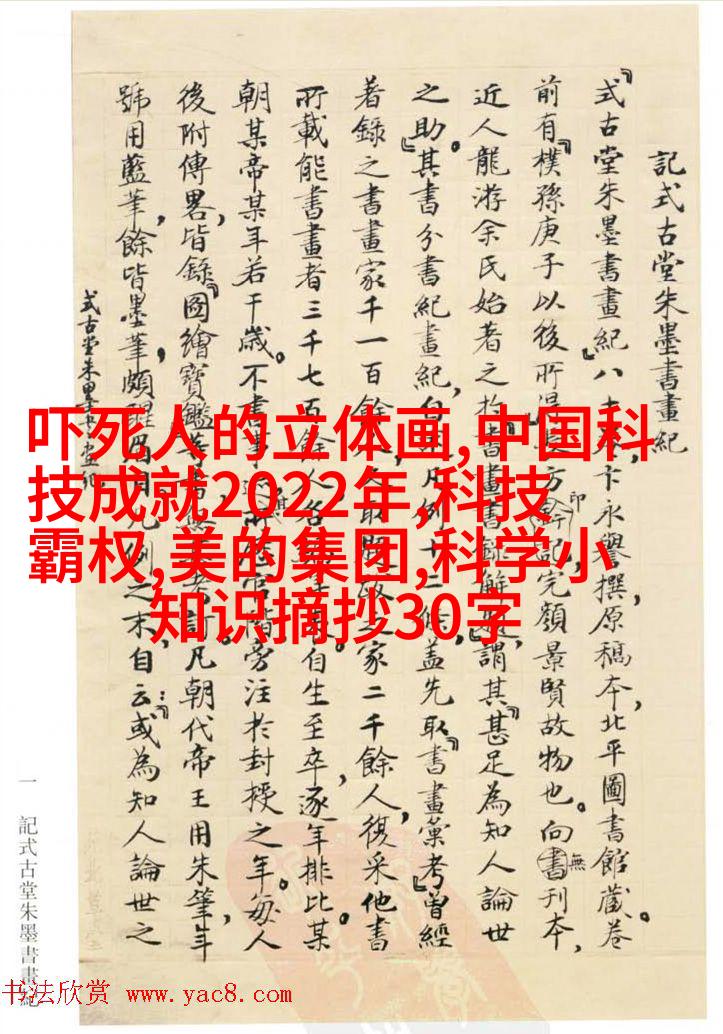 記式古堂朱墨書畫紀
『式古堂朱墨書畫紀』八十卷,卞永譽撰,原稿本,北平圖書館藏。卷
前有『樸孫庚子以後所得』
印
記,完顏景賢故物也。向無書刊本,
近人龍游余氏始著之於書畫書錄解題,謂其『甚足為知人論世
之助』。其書分書紀畫紀,
凡例十二條,蓋先取『書畫彙考』曾經
著錄之書畫家千一百餘人,
家二千餘人,復采他書
所載能書畫者三千七百餘人,
自生至卒,逐年排比某
朝某帝某年若干歲。不書事
旁注於封授之年。每人
後附傳畧,皆錄『圖繪寶鑑』等書
凡朝代帝王用朱筆,年
號用藍筆,餘皆墨筆,頗醒眉目。凡例之末,自云:『或為知人論世之
式古堂朱墨書畫紀
吓死人的立体画,中国科
技成就2022年,科技
霸权,美的集团,科学小
知识摘抄30字
一
記式古堂朱墨書畫紀
书法欣赏 www.yac8.com